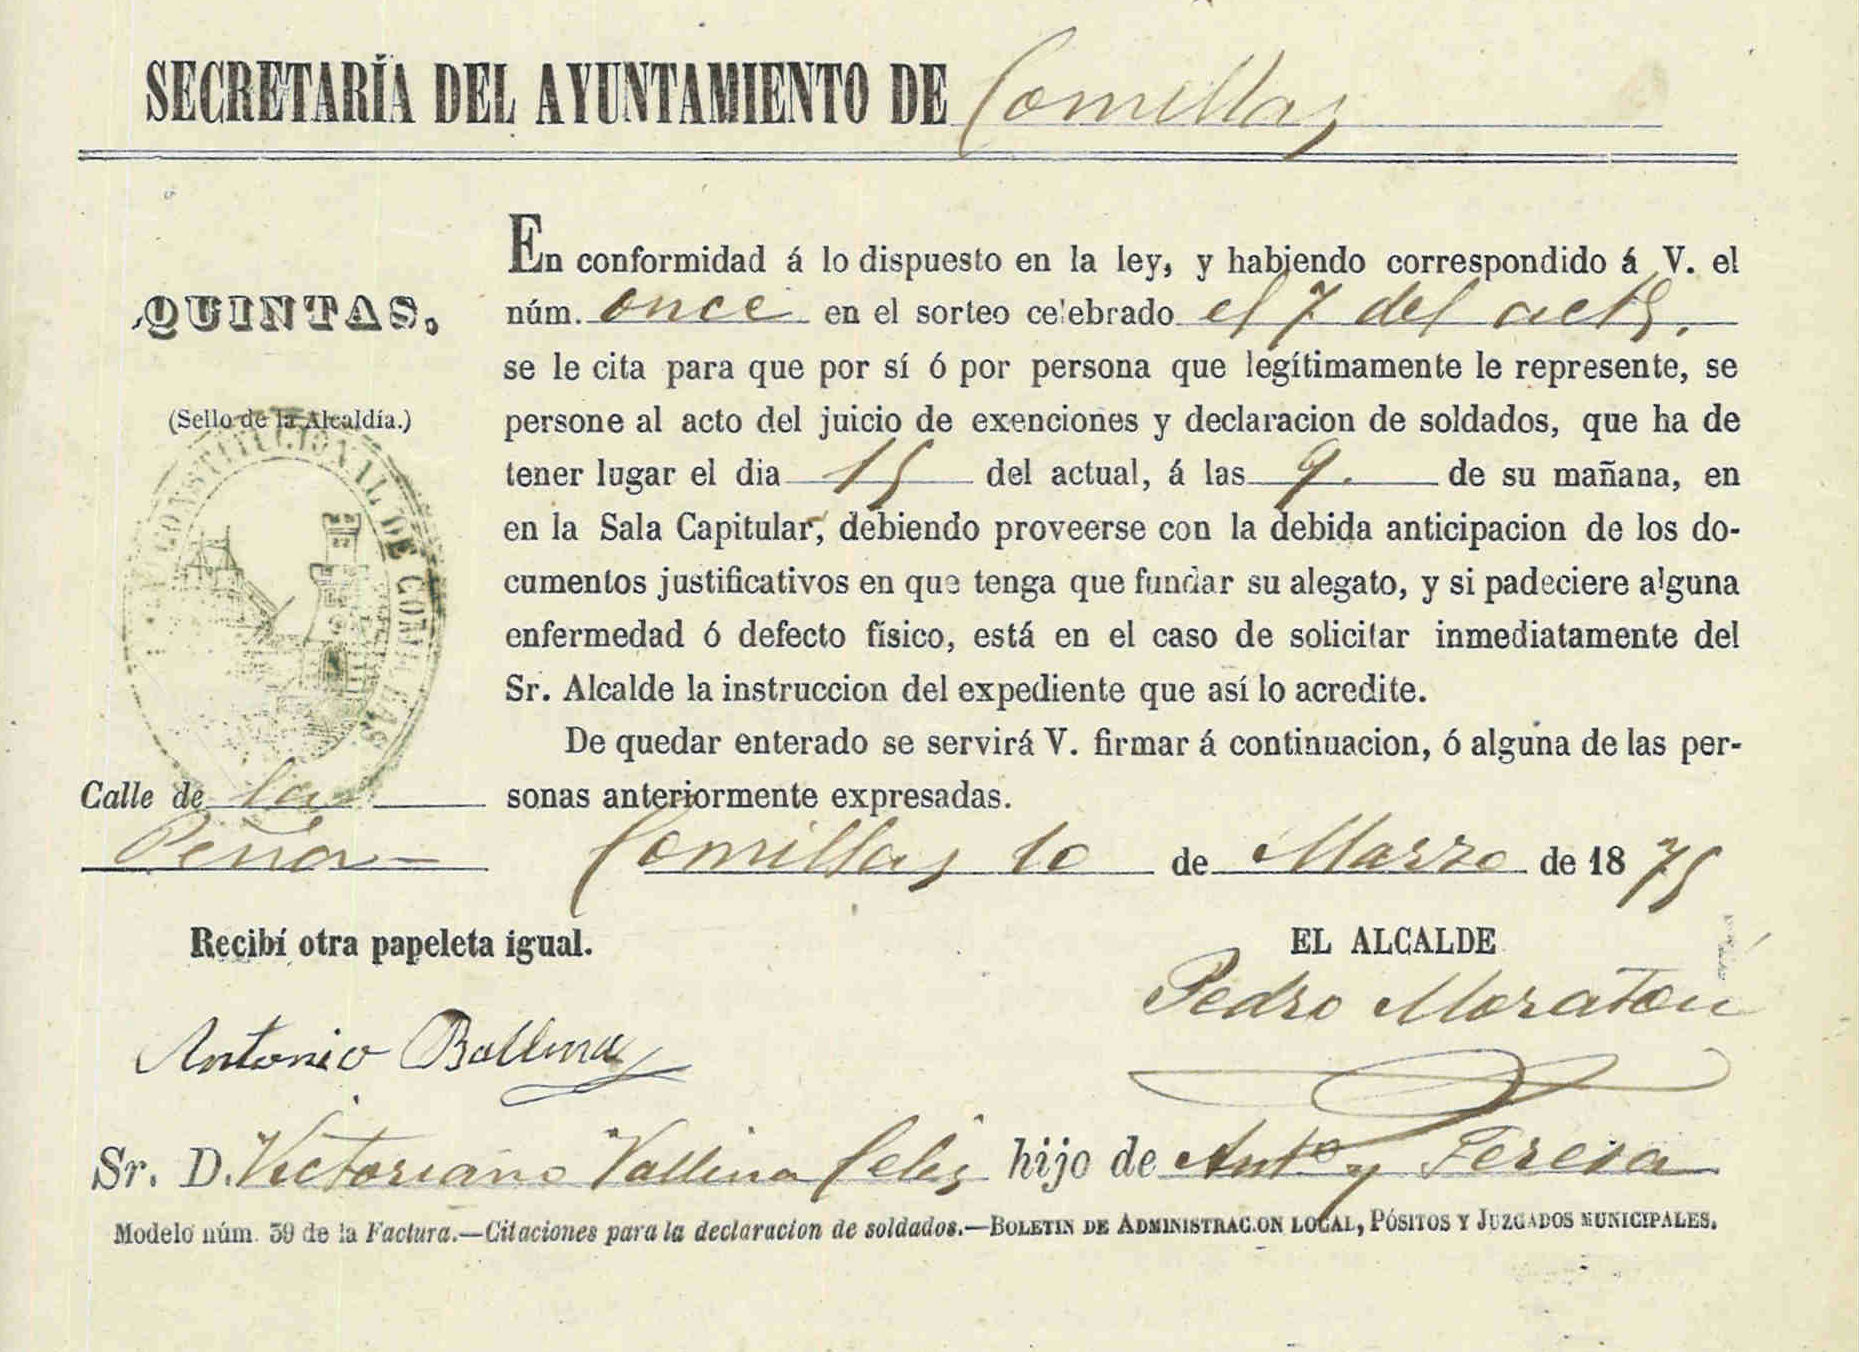 SECRETARÍA DEL AYUNTAMIENTO DE Comillas
QUINTAS.
(Sello de la Alcaldía.)
CONSTITUCIONAL DE COMILLAS
En conformidad á lo dispuesto en la ley, y habiendo correspondido á V. el
núm. once en el sorteo celebrado el 7 del actl.
se le cita para que por sí ó por persona que legítimamente le represente, se
persone al acto del juicio de exenciones y declaracion de soldados, que ha de
tener lugar el dia 15 del actual, á las 9. de su mañana, en
en la Sala Capitular, debiendo proveerse con la debida anticipacion de los do-
cumentos justificativos en que tenga que fundar su alegato, y si padeciere alguna
enfermedad ó defecto físico, está en el caso de solicitar inmediatamente del
Sr. Alcalde la instruccion del expediente que así lo acredite.
De quedar enterado se servirá V. firmar á continuacion, ó alguna de las per-
sonas anteriormente expresadas.
Calle de la
Peña
Comillas 10 de Marzo de 1875
Recibí otra papeleta igual.
EL ALCALDE
Pedro Moraton
Antonio Ballina
Sr. D. Victoriano Vallina Celis hijo de Anto y Teresa
Modelo núm. 39 de la Factura.—Citaciones para la declaracion de soldados.—BOLETIN DE ADMINISTRACION LOCAL, PÓSITOS Y JUZGADOS MUNICIPALES.